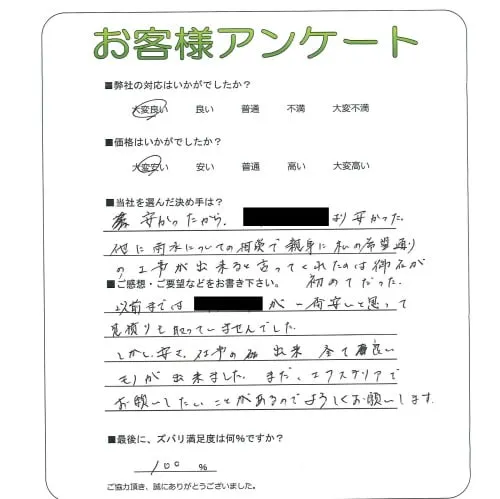 お客様アンケート
■弊社の対応はいかがでしたか？
大変良い 良い 普通 不満 大変不満
■価格はいかがでしたか？
大変安い 安い 普通 高い 大変高い
■当社を選んだ決め手は？
安かったから、 より安かった。
他に雨水についての相談で親身に私の希望通り
の工事が出来ると言ってくれたのは御社が
初めてだった。
■ご感想・ご要望などをお書き下さい。
以前までは が一番安いと思って
見積りも取っていませんでした。
しかし安さ、 出来 全て良い
モノが出来ました。また、エクステリアで
お願いしたいことがあるのでよろしくお願いします。
■最後に、ズバリ満足度は何%ですか？
100 %
ご協力頂き、誠にありがとうございました。